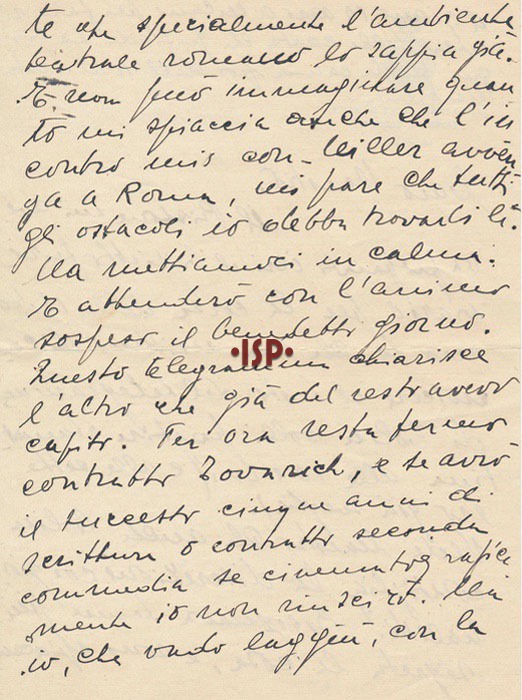 te che specialmente l'ambiente
teatrale romano lo sappia già.
E non può immaginare quan
to mi spiaccia anche che l'in
contro mio con Miller avven
ga a Roma, mi pare che tutti
gli ostacoli io debba trovarli là.
Ma mettiamoci in calma.
E attenderò con l'animo
sospeso il benedetto giorno.
•ISP•
Questo telegramma chiarisce
l'altro che già del resto avevo
capito. Per ora resta fermo
contratto, e se avrò
il successo cinque anni di
scrittura o contratto seconda
commedia se cinematografica
mente io non riuscirò. Ma
io, che vado laggiù, con la